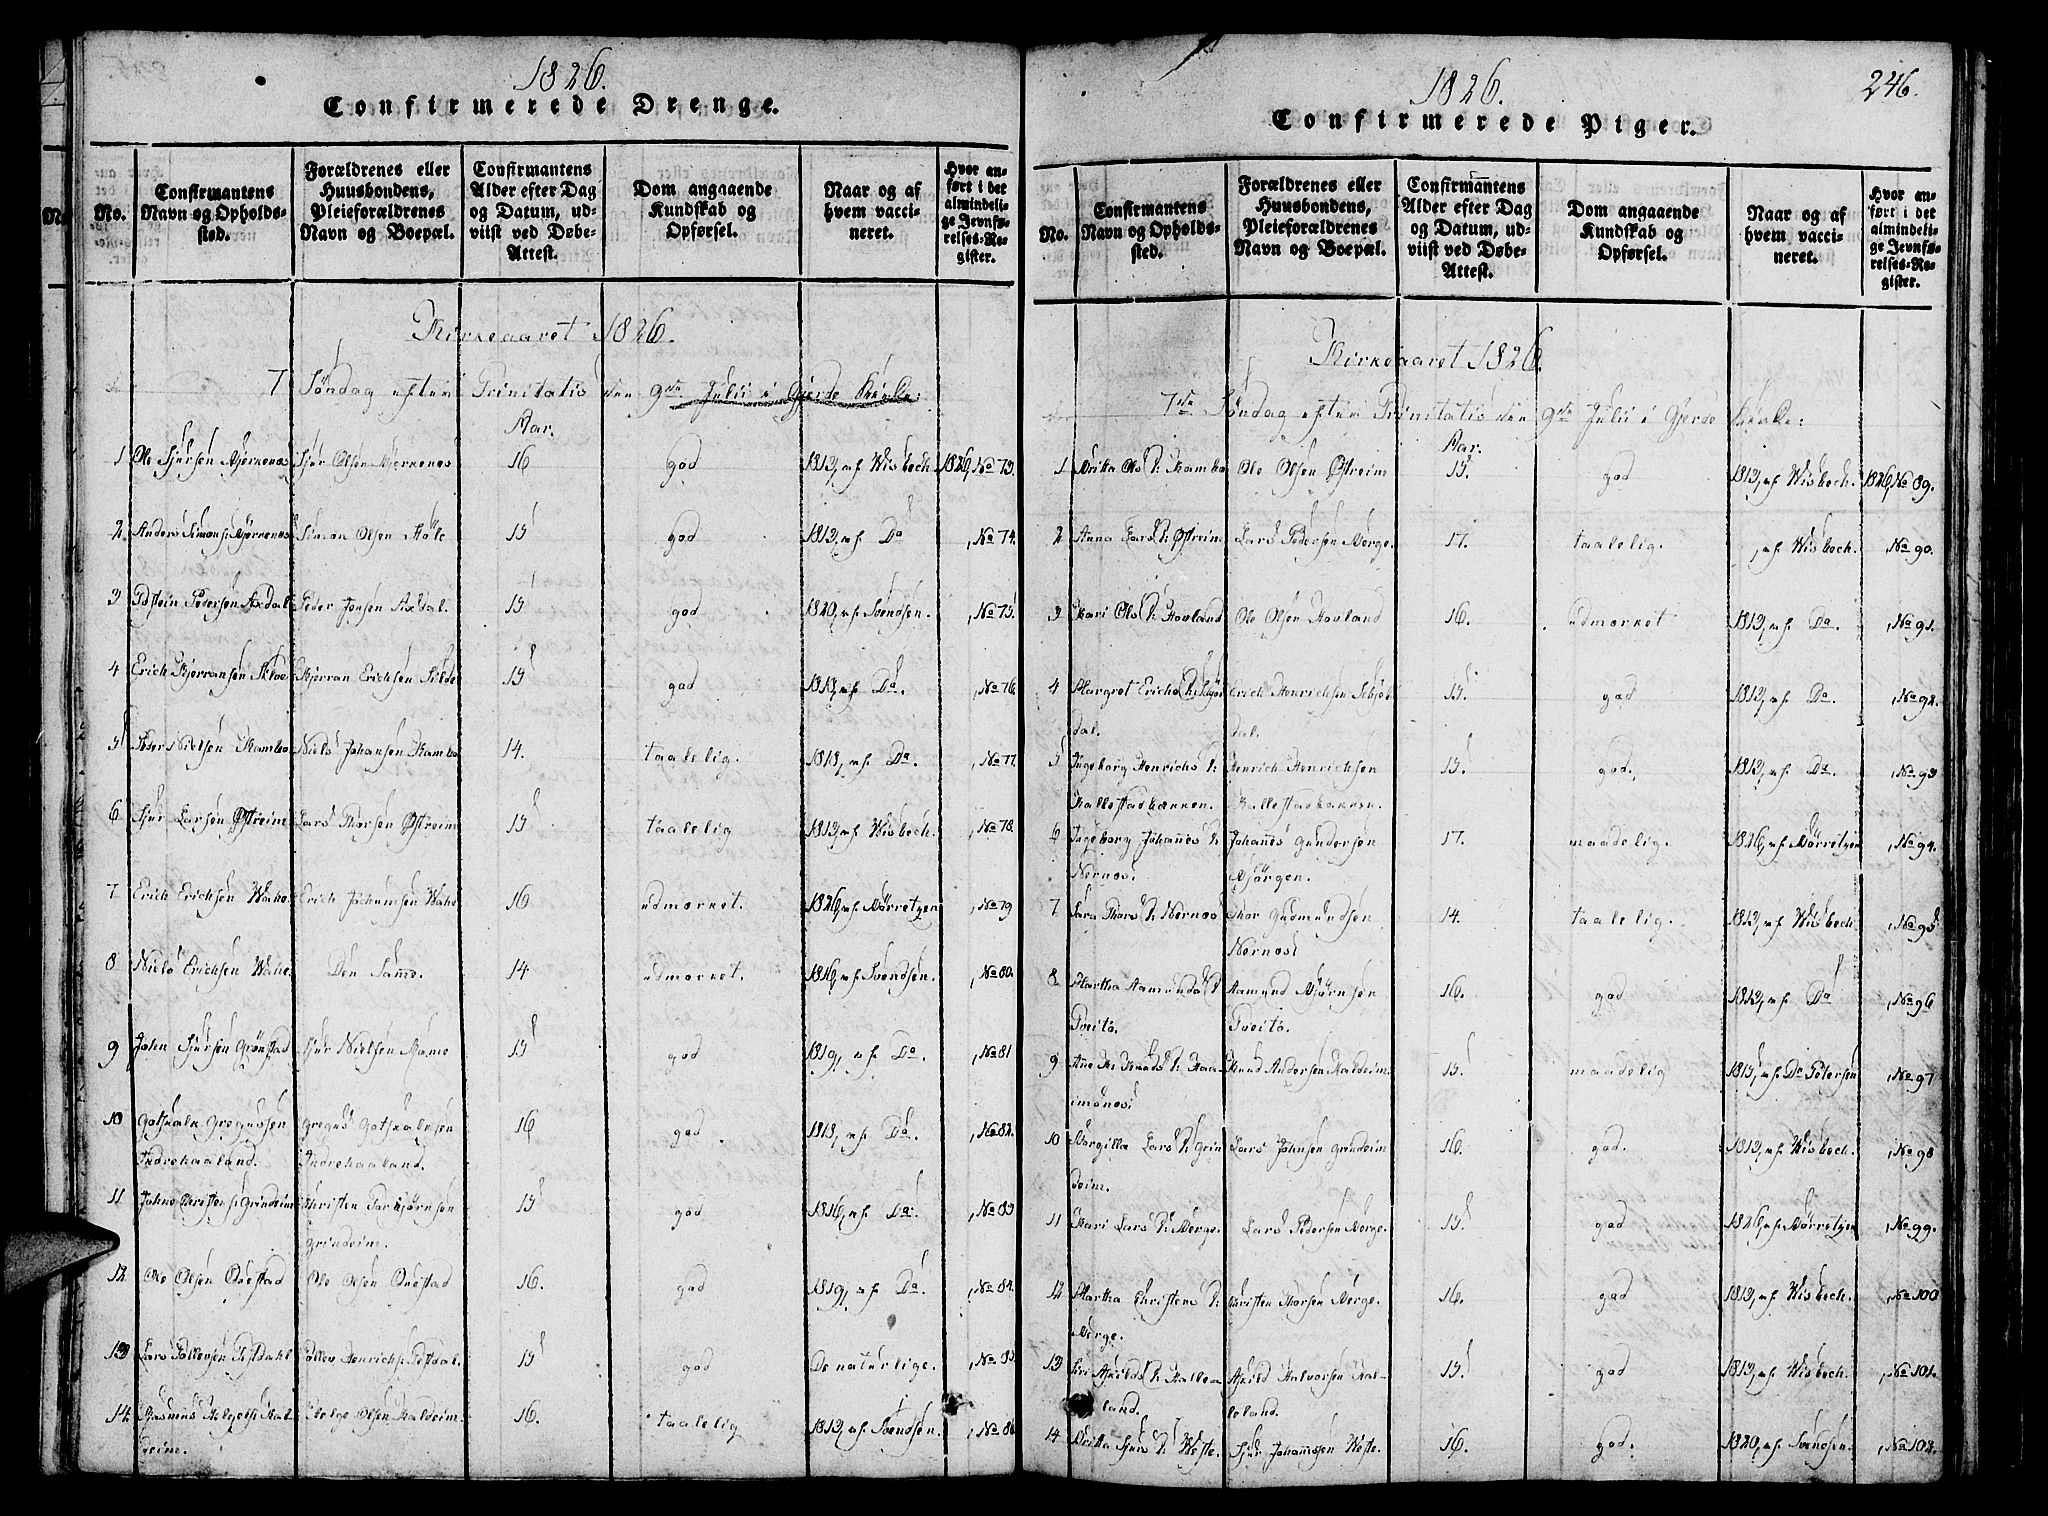 1826.
Confirmerede Drenge.
No.
Confirmantens Navn og Opholds-sted.
Forældrenes eller Huusbondens, Pleieforældrenes Navn og Boepæl.
Confirmantens Alder efter Dag og Datum, ud-viist ved Døbe-Attest.
Dom angaaende Kundskab og Opførsel.
Naar og af hvem vacci-neret.
Hvor an-ført i det almindeli-ge Jevnfø-relses-Re-gister.
Kirkeaaret 1826.
7 Søndag efter Trinitatis den 9de Julii i Gjerde Kirke:
Aar.
1 Ole Sjursen Bjørkenæs Sjur Olsen Bjørkenæs 16 god 1813, af Wisbech. 1826, No 73.
2 Anders Simons: Bjørkenæs Simon Olsen 15 god 1813, af Do , No 74.
3 Pedersen Axdal Peder Jonsen Axdal. 15 god 1820, af Svendsen. , No 75.
4 Erich Bjørransen Bjørran Erichsen 15 god 1813, af Do. , No 76.
5 Peder Nielsen Kambo Niels Johansen Kambo 14. taalelig. 1813, af Do. , No 77.
6 Sjur Larsen Østreim Lars Thorsen Østreim 15 taalelig 1813, af Wisbech. , No 78.
7 Erich Erichsen Wahe Erich Wahe 16 udmærket. 1826, af Nørretzen , No 79
8 Niels Erichsen Wahe. Den Samme. 14 udmærket. 1816, af Svendsen. , No 80.
9 John Sjursen Grønstad Sjur Nielsen 15 god 1819, af Do. , No 81
10 Gotskalk Gregusen Gregus Gotskalksen 16 god. 1813, af Do. , No 82.
Indrehaaland. Indrehaaland.
11 Christens: Grindeim Christen Torbjørnsen 15 god 1816, af Do. , No 83
Grindeim.
12 Ole Olsen Onestad Ole Olsen Onestad 16. god 1819, af Do. , No 84.
13 Lars Tollevsen Tollev Henrichs: 15 god De naturlige. , No 85.
14 Rasmus Helges: Kal- Helge Olsen Kaldeim. 16. taalelig 1813, af Svendsen. , No 86
deim.
1826.
246.
Confirmerede Piger.
No.
Confirmantens Navn og Opholds-sted.
Forældrenes eller Huusbondens, Pleieforældrenes Navn og Boepæl.
Confirmantens Alder efter Dag og Datum, ud-viist ved Døbe-Attest.
Dom angaaende Kundskab og Opførsel.
Naar og af hvem vacci-neret.
Hvor an-ført i det almindeli-ge Jevnfø-relses-Re-gister.
Kirkeaaret 1826.
7de Søndag efter Trinitatis den 9de Julii i Gjerde Kirke:
Aar.
1 Brita Ols D: Kambo Ole Olsen Østreim 15. god 1813, af Wisbech. 1826, No 89.
2 Anna Lars D: Østreim Lars Pedersen Berge. 17. taalelig. , af Wisbech. , No 90.
3 Kari Ols D: Hovland Ole Olsen Hovland 16. udmærket 1813, af Do. , No 91.
4 Margret Erichs D: Erich Henrichsen 15. god 1812, af Do. , No 92.
dal. dal.
5 Ingeborg Henrichs D: Henrich Henrichsen 15. god. 1813, af Do. , No 93
Kallestadbakken. Kallestadbakken.
6 Ingeborg Johannes D: Johannes Gundersen 17. maadelig. 1826, af Nørretzen , No 94.
Nernæs. Bjørgen.
7 Sara Thors D: Nernæs Thor Gudmundsen 14. taalelig. 1813, af Wisbech. , No 95
Nernæs
8 Martha Aamunds D: Aamund Bjørnsen 16. god 1813, af Do , No 96
Tveito. Tveito.
9 Knuds D: Knud Andersen Kaldeim. 15. maadelig 1815, af Do Petersen , No 97
10 Lars D: Grin- Lars Johnsen Grindeim 16. god. 1813, af Wisbech. , No 98
deim.
11 Kari Lars D: Berge. Lars Pedersen Berge. 15. god 1826, af Nørretzen , No 99.
12 Martha Christens D: Christen Thorsen Berge. 16. god 1813, af Wisbech. , No 100
Berge.
13 Askilds D: Kalle- Askild Halvorsen Kal- 15. god 1813, af Wisbech. , No 101.
land. leland.
14 Brita Sjurs D: Sjur Johannessen 16. god. 1820, af Svendsen. , No 102.